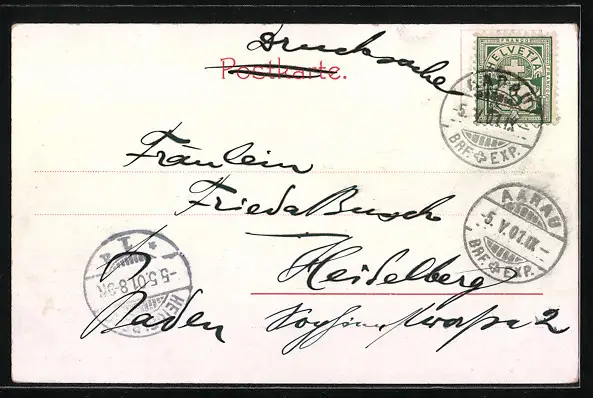 Drucksache
Postkarte.
FRANCO
HELVETIA
AARAU
-5.V.01.IX-
BRF. EXP.
Fräulein
Frieda Busch
AARAU
-5.V.01.IX-
BRF. EXP.
Heidelberg
-5.5.01.8-9N.
Baden
2